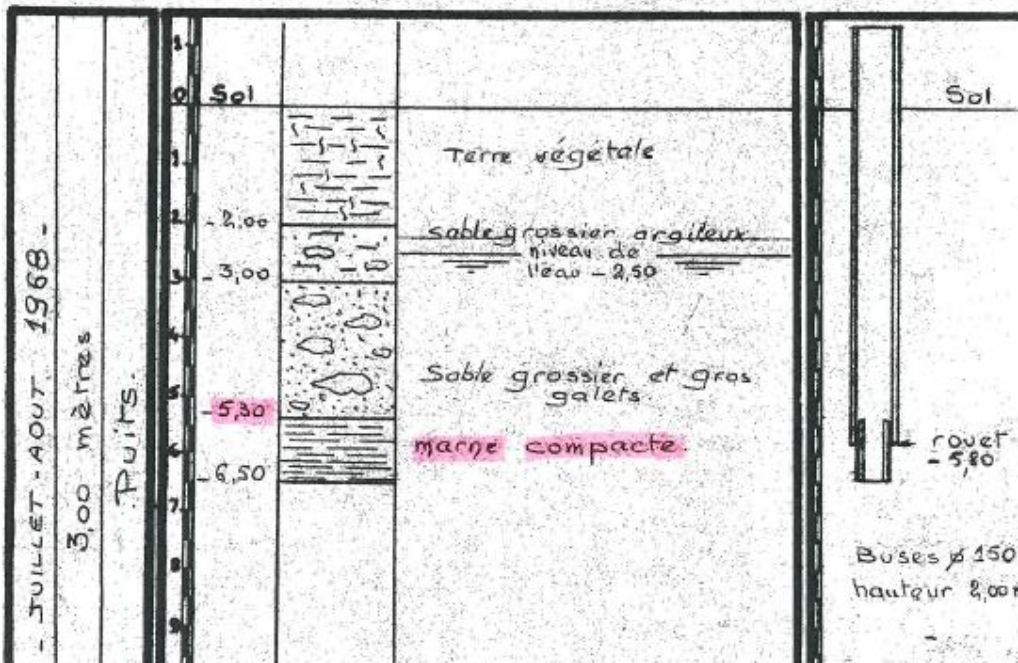 - JUILLET - AOUT 1968 -
3,00 mètres
Puits.
1
0
1
2
3
4
5
6
7
8
9
Sol
- 2,00
- 3,00
- 5,30
- 6,50
Terre végétale
sable grossier argileux.
niveau de
l'eau - 2,50
Sable grossier et gros
galets.
marne compacte.
Sol
rouet
- 5,80
Buses ø 150
hauteur 2,00